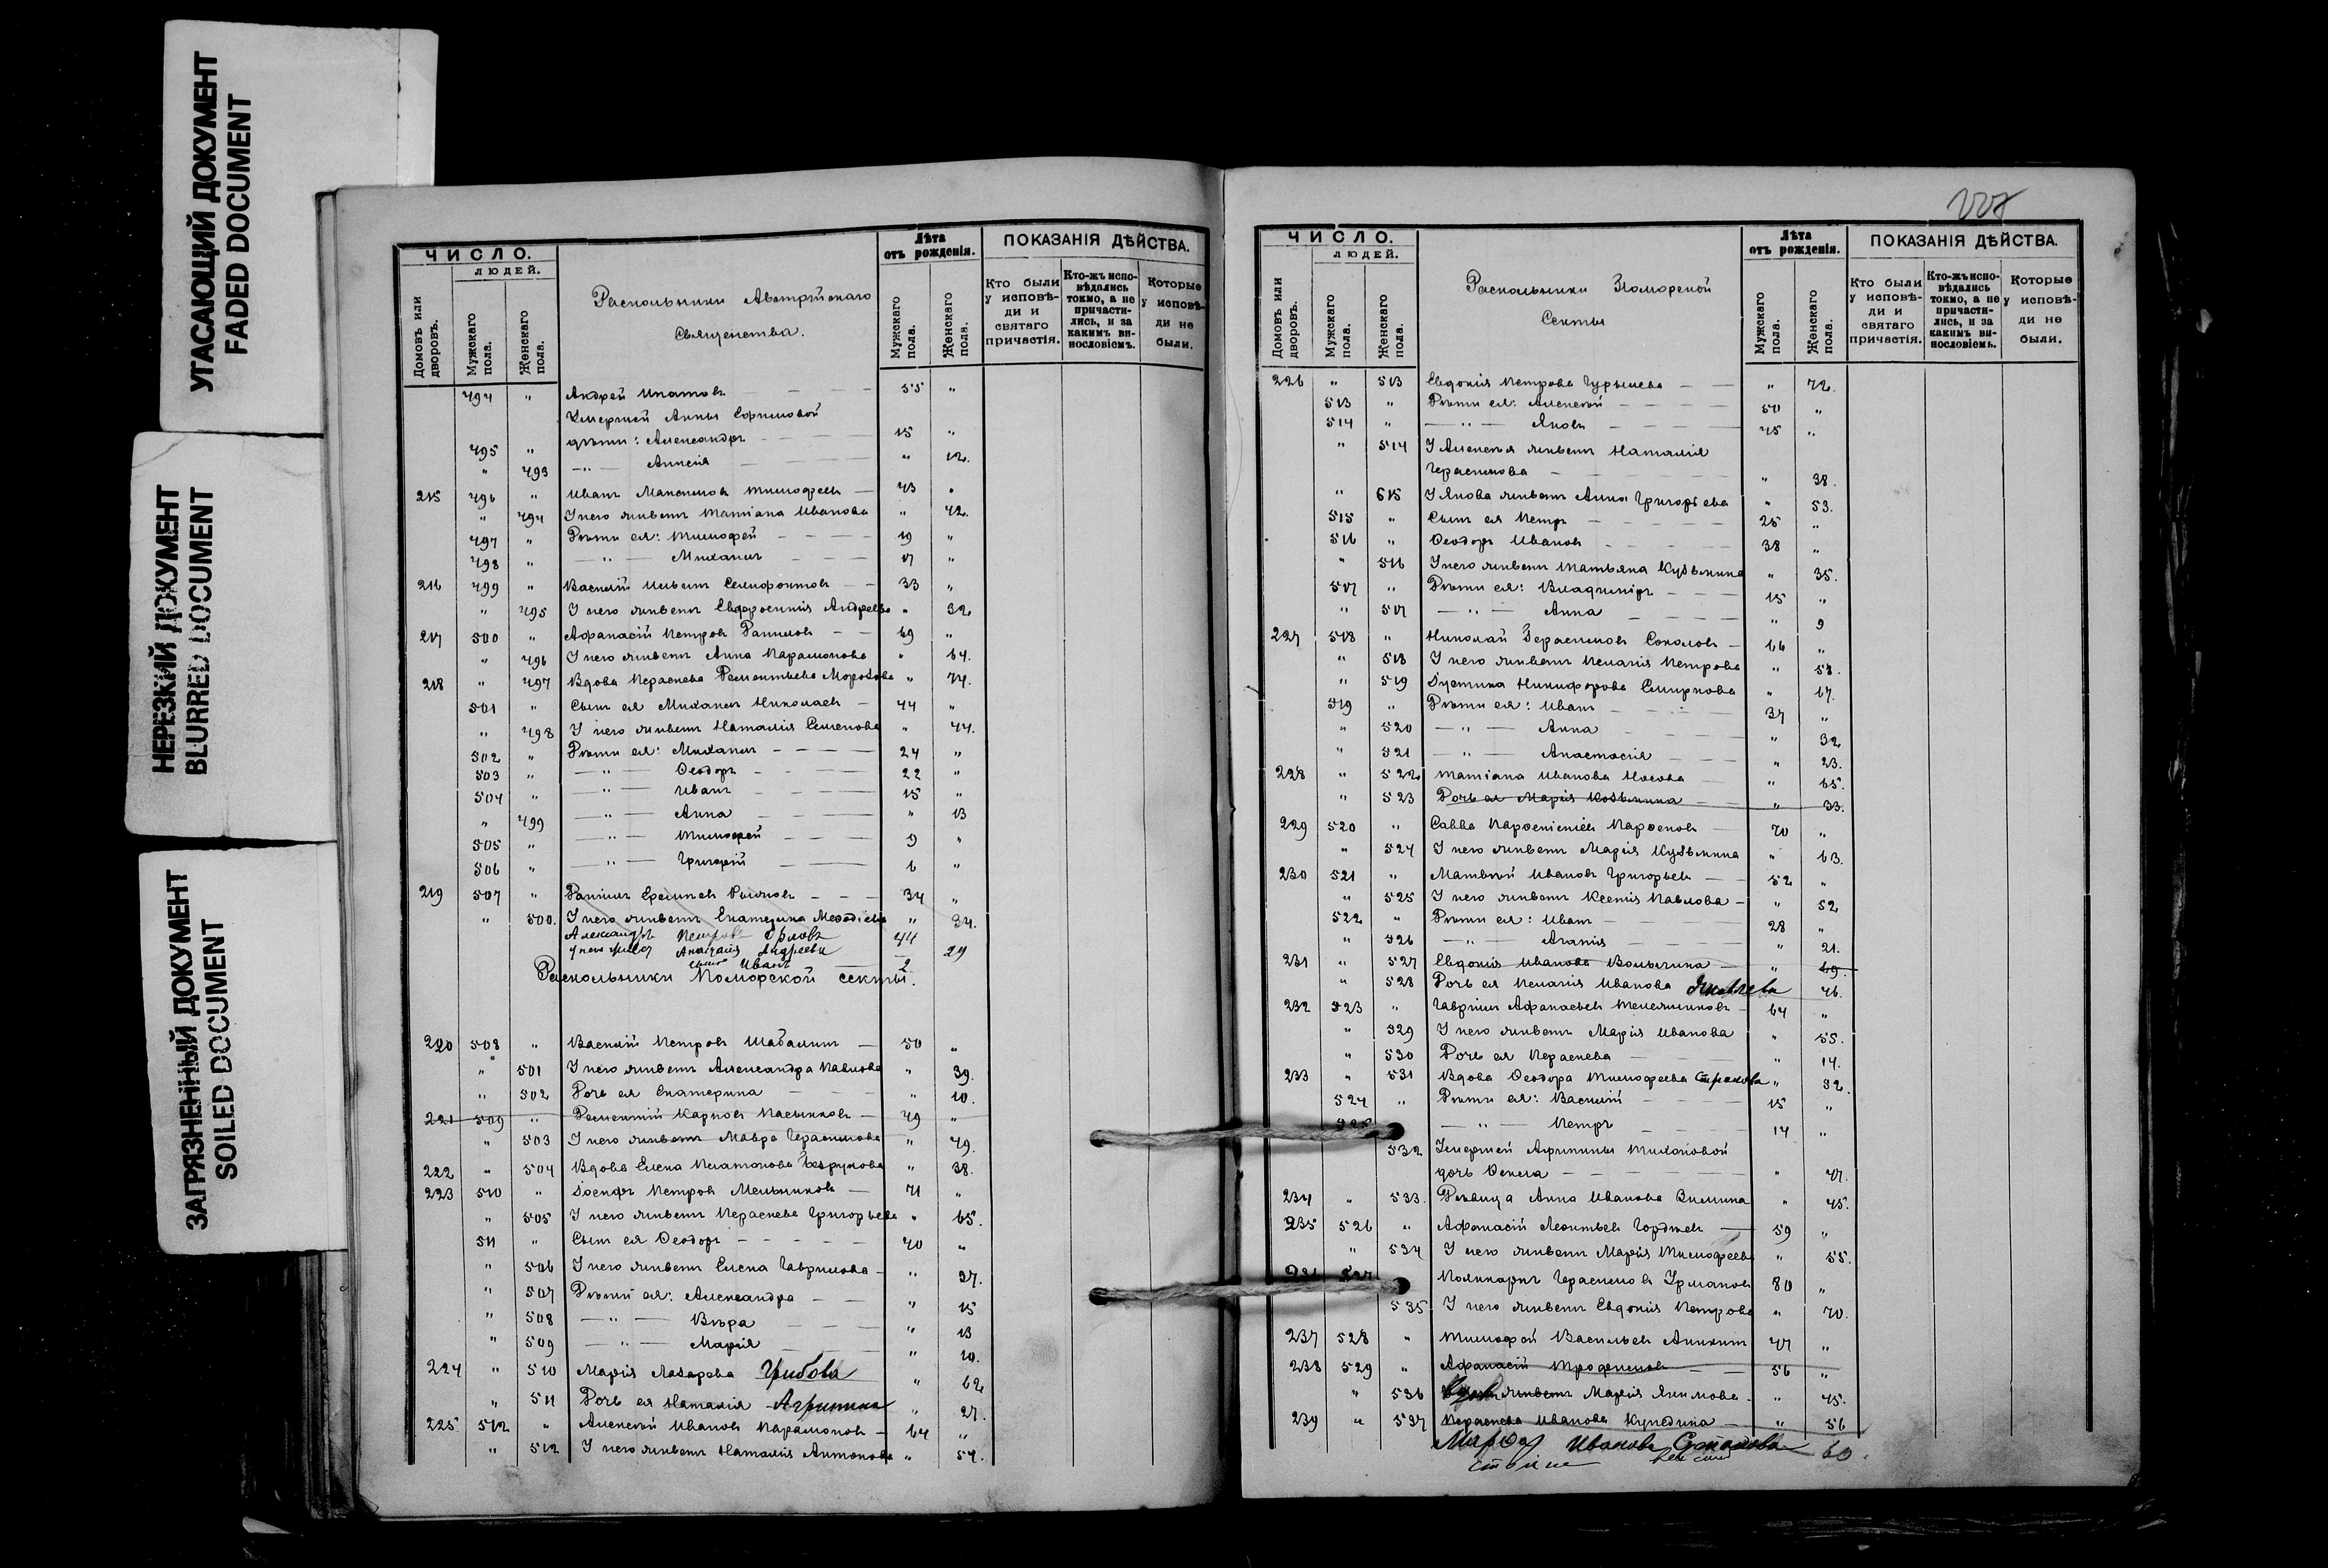 УГАСАЮЩИЙ ДОКУМЕНТ
FADED DOCUMENT
НЕРЕЗКИЙ ДОКУМЕНТ
BLURRED DOCUMENT
ЗАГРЯЗНЕННЫЙ ДОКУМЕНТ
SOILED DOCUMENT
ЧИСЛО.
ЛЮДЕЙ.
Домовъ или дворовъ.
Мужскаго пола.
Женскаго пола.
Раскольники Австрійскаго
Священства.
Лѣта отъ рожденія.
Мужскаго пола.
Женскаго пола.
ПОКАЗАНІЯ ДѢЙСТВА.
Кто были у исповѣди и святаго причастія.
Кто-жъ исповѣдались токмо, а не причастились, и за какимъ винословіемъ.
Которые у исповѣди не были.
494 " Андрей Ипатовъ — 55 "
Умершей Анны Ефимовой
495 " дѣти: Александръ — 15 "
" 493 — " — Анисія — " 12.
215 496 " Иванъ Максимовъ Тимофеевъ — 43 "
" 494 У него живетъ Татіана Иванова " 42.
497 " Дѣти ея: Тимофей — 19 "
498 " — " — Михаилъ — 17 "
216 499 " Василій — 33 "
" 495 У него живетъ Евфросинія Андреева " 32
217 500 " Афанасій Петровъ — 69 "
" 496 У него живетъ Анна Парамонова " 64.
218 " 497 Вдова Параскева Дементьева Морозова " 74.
501 " Сынъ ея Михаилъ Николаевъ — 44 "
" 498 У него живетъ Наталія Семенова " 44.
502 " Дѣти ея: Михаилъ — 24 "
503 " — " — Ѳеодоръ — 22 "
504 " — " — Иванъ — 15 "
" 499 — " — Анна — " 13
505 " — " — Тимофей — 9 "
506 " — " — Григорій — 6 "
219 507 " Даніилъ — 34 "
" 500. У него живетъ Екатерина Меѳодіева " 34.
Александръ Петровъ Орловъ 44
У него живет Анастасія Андреева 29
сынъ Иванъ 2
Раскольники Поморской секты.
220 508 " Василій Петровъ Шабалинъ — 50 "
" 501 У него живетъ Александра Павлова " 39.
" 502 Дочь ея Екатерина — " 10.
221 509 " Дементій Карповъ — 49 "
" 503 У него живетъ Мавра Герасимова " 49.
222 " 504 Вдова Елена Платонова " 38.
223 510 " Іосифъ Петровъ Мельниковъ — 71 "
" 505 У него живетъ Параскева Григорьева " 65.
511 " Сынъ ея Ѳеодоръ — 40 "
" 506 У него живетъ Елена Гаврилова — " 37.
" 507 Дѣти ея: Александра — " 15
" 508 — " — Вѣра — " 13
" 509 — " — Марія — " 10.
224 " 510 Марія Лазарева Грибова " 62
" 511 Дочь ея Наталія " 27.
225 512 " Алексѣй Иванов Парамонов — 64 "
" 512 У него живетъ Наталія Антонова " 54.
ЧИСЛО.
ЛЮДЕЙ.
Домовъ или дворовъ.
Мужскаго пола.
Женскаго пола.
Раскольники Поморской
Секты
Лѣта отъ рожденія.
Мужскаго пола.
Женскаго пола.
ПОКАЗАНІЯ ДѢЙСТВА.
Кто были у исповѣди и святаго причастія.
Кто-жъ исповѣдались токмо, а не причастились, и за какимъ винословіемъ.
Которые у исповѣди не были.
226 " 513 Евдокія Петрова — " 72.
513 " Дѣти ея: Алексѣй — 50 "
514 " — " — Яковъ — 45 "
" 514 У Алексѣя живетъ Наталія
Герасимова — " 38.
" 615 У Якова живетъ Анна Григорьева " 53.
515 " Сынъ ея Петръ — 25 "
516 " Ѳеодоръ Ивановъ — 38 "
" 516 У него живетъ Татьяна Кузьмина " 35.
517 " Дѣти ея: Владиміръ — 15 "
" 517 — " — Анна — " 9
227 518 " Николай Герасимовъ Соколовъ — 66 "
" 518 У него живетъ Пелагія Петрова " 58.
" 519 Іустина Никифорова Смирнова " 67.
519 " Дѣти ея: Иванъ — 37 "
" 520 — " — Анна — " 32
" 521 — " — Анастасія — " 23.
228 " 522 Татіана Иванова Носова — " 65.
" 523 Дочь ея Марія Козьмина — " 33.
229 520 " Савва Парѳеніевъ Парѳеновъ — 70 "
" 524 У него живетъ Марія Кузьмина " 63.
230 521 " Матвѣй Ивановъ Григорьевъ — 52 "
" 525 У него живетъ Ксенія Павлова — " 52
522 " Дѣти ея: Иванъ — 28 "
" 526 — " — Агапія — " 21.
231 " 527 Евдокія Иванова — " 69.
" 528 Дочь ея Пелагія Иванова Яковлева 46.
232 523 " Гавріилъ Афанасьевъ — 64 "
" 529 У него живетъ Марія Иванова " 55.
" 530 Дочь ея Параскева — " 14.
233 " 531 Вдова Ѳеодора Тимофеева " 32.
524 " Дѣти ея: Василій — 15 "
— " — Петръ — 14 "
532 Умершей Агрипины
дочь Ѳекла — " 47.
234 " 533. Дѣвица Анна Иванова Зимина " 45.
235 526 " Афанасій Леонтьевъ Гордѣевъ — 59 "
" 534 У него живетъ Марія Тимофеева " 55.
Поликарпъ Герасимовъ 80 "
535 У него живетъ Евдокія Петрова " 70.
237 528 " Тимофей Васильевъ Аникинъ 47 "
238 529 " Афанасій Трофимовъ — 56 "
" 536 живетъ Марія Якимова — " 45.
239 " 537 Параскева Иванова — " 56
Марѳа Иванова Степанова 60.